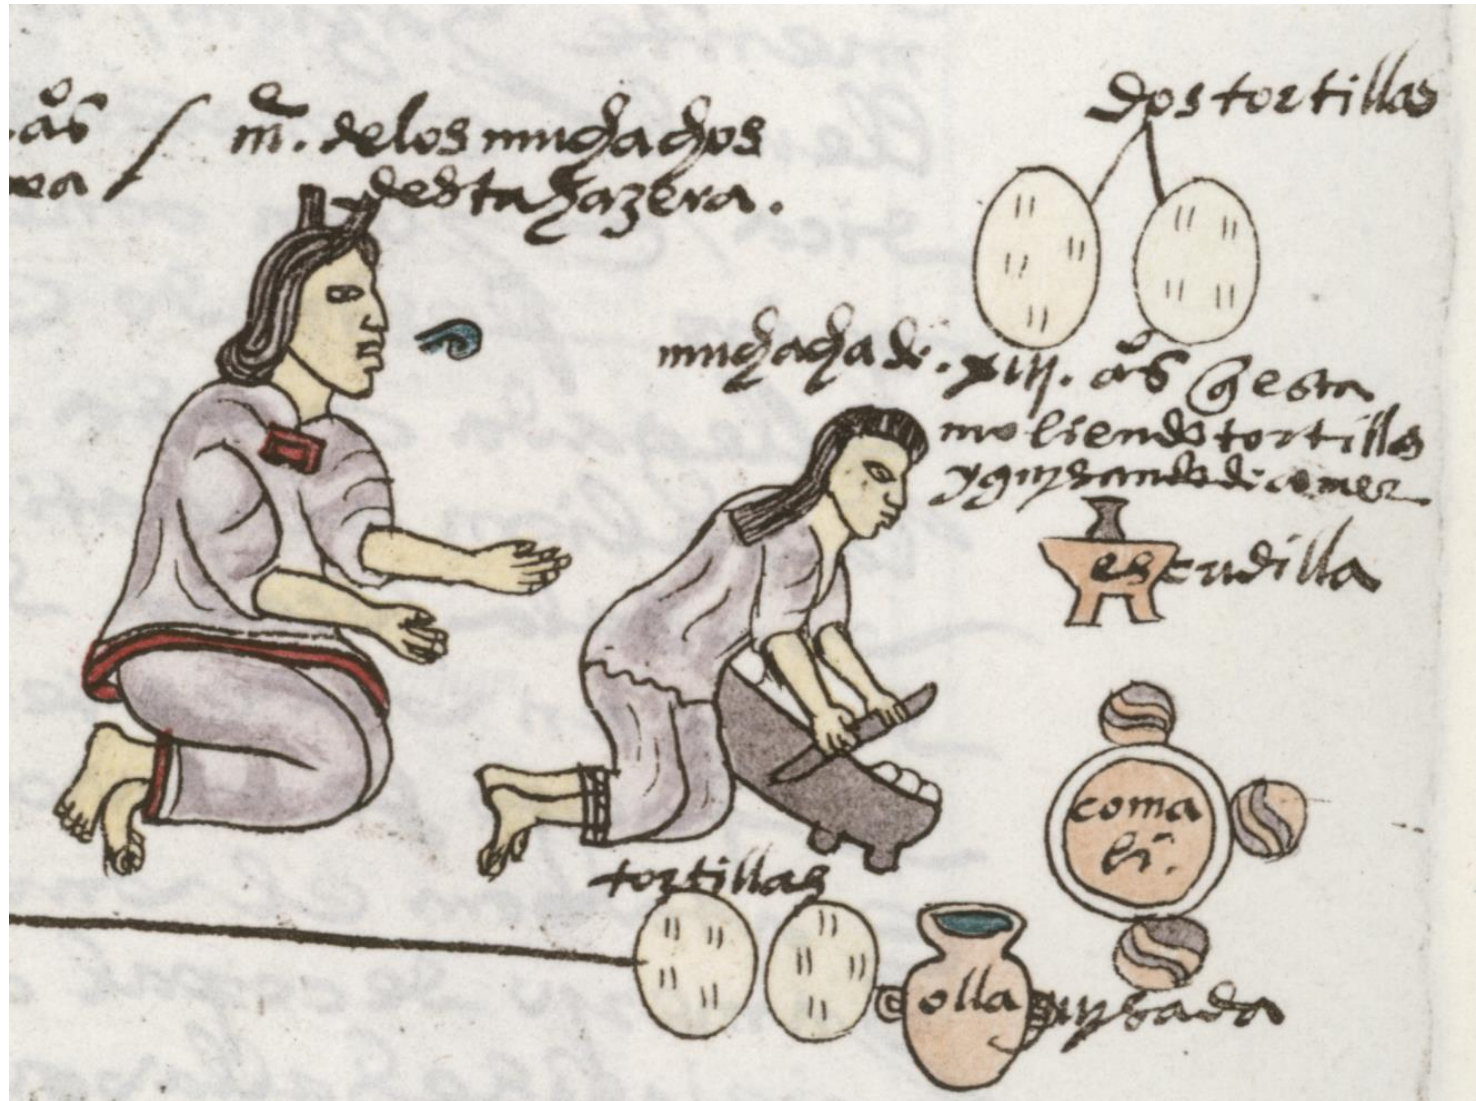 .as
m^e. de los muchachos
desta hazera.
dos tortillas
muchacha de. xiij. as q̃ esta
moliendo tortillas
y guysando de comer
escudilla
coma
li.
tortillas
olla guysada